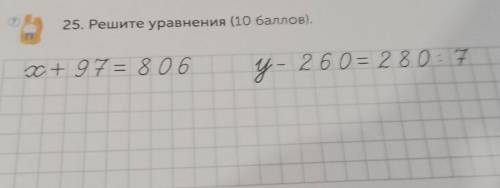 25. Решите уравнения (10 баллов).
x + 97 = 806 y - 260 = 280 : 7